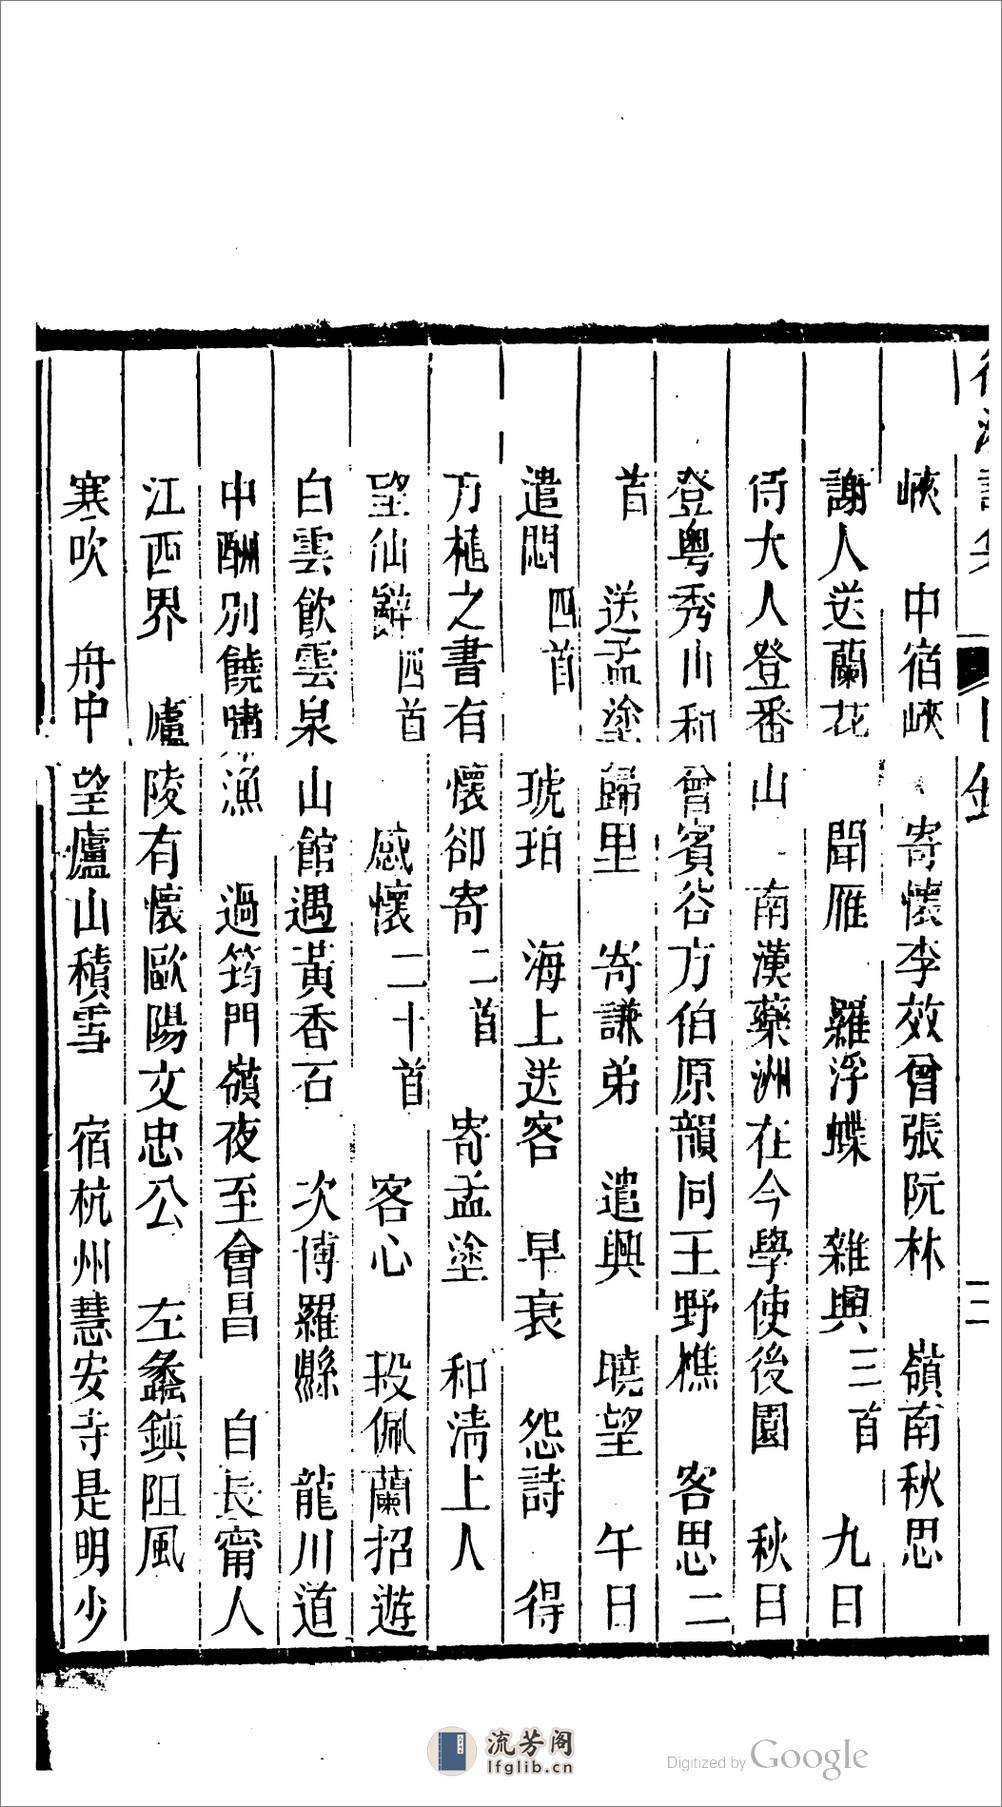 後湘詩集 目錄 二
峽　中宿峽　寄懷李效曾張阮林　嶺南秋思
謝人送蘭花　聞雁　羅浮蝶　雜興三首　九日
侍大人登番山　南漢藥洲在今學使後園　秋日
登粵秀山和曾賓谷方伯原韻同王野樵　客思二
首　送孟塗歸里　寄謙弟　遣興　曉望　午日
遣悶四首　琥珀　海上送客　早衰　怨詩　得
方植之書有懷卻寄二首　寄孟塗　和清上人
望仙辭四首　感懷二十首　客心　投佩蘭招遊
白雲飲雲泉山館遇黃香石　次博羅縣　龍川道
中酬別饒嘯漁　過筠門嶺夜至會昌　自長甯人
江西界　廬陵有懷歐陽文忠公　左蠡鎮阻風
寒吹　舟中望廬山積雪　宿杭州慧安寺是明少
流芳阁
lfglib.cn
Digitized by Google